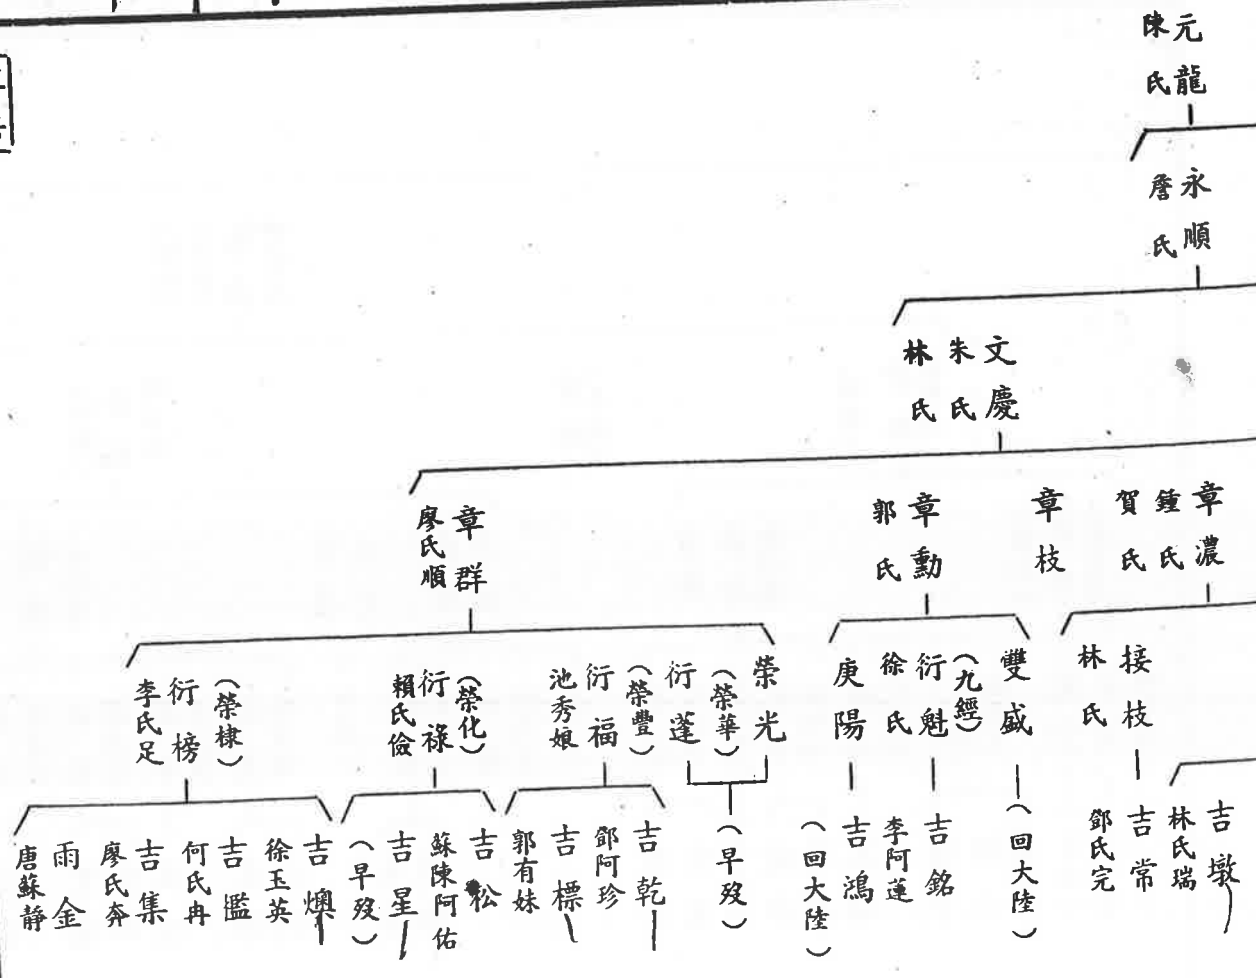 元龍
陳氏
永順
詹氏
文慶
朱氏
林氏
章濃
鍾氏
賀氏
章枝
章勳
郭氏
章群
廖氏順
接枝
林氏
雙盛
(九經)
衍魁
徐氏
庚陽
榮光
(榮華)
衍蓬
(榮豐)
衍福
池秀娘
(榮化)
衍祿
賴氏儉
(榮棣)
衍榜
李氏足
吉墩
林氏瑞
吉常
鄧氏完
(回大陸)
吉銘
李阿蓮
吉鴻
(回大陸)
(早歿)
吉乾
鄧阿珍
吉標
郭有妹
吉松
蘇陳阿佑
吉星
(早歿)
吉燠
徐玉英
吉尷
何氏冉
吉集
廖氏奔
雨金
唐蘇静